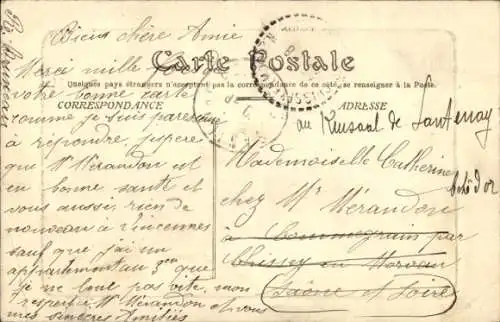 Bien chère Amie
Carte Postale
Merci mille fois de
Quelques pays étrangers n'acceptent pas la correspondance de ce côté, se renseigner à la Poste.
votre bonne carte
CORRESPONDANCE
comme je suis paresseuse
à répondre, j'espère
que Mr Mérandon est
en bonne santé et
vous aussi, rien de
nouveau à Vincennes
sauf que j'ai un
appartement au 3em que
je ne loue pas vite, mon
respect à Mr Mérandon et vous
mes sincères Amitiés
ADRESSE
au Kursaal de Santenay
Mademoiselle Catherine
Côte d'or
chez Mr Mérandon
à par
Chissey en Morvan
Saône et Loire